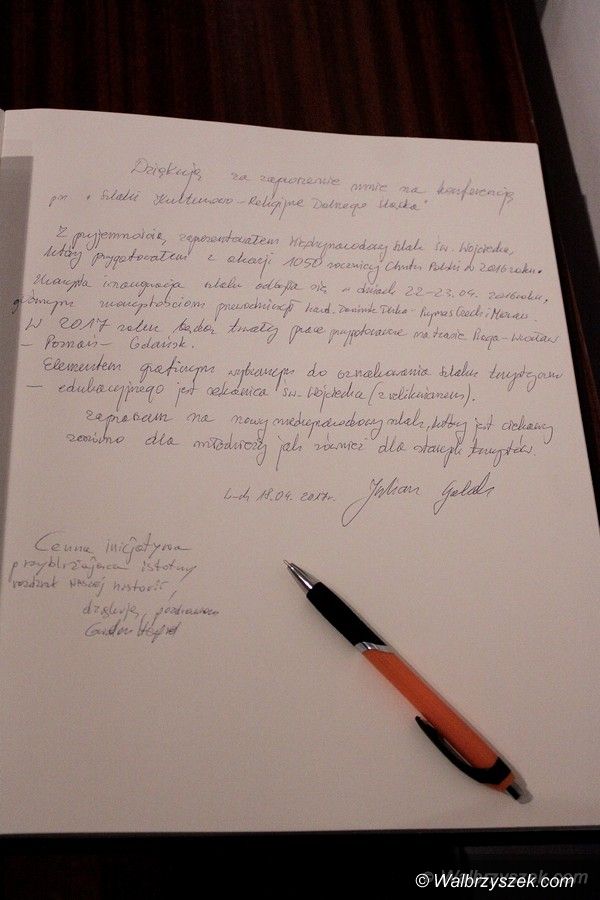 Dziękuję za zaproszenie mnie na konferencję
pn. "Szlaki Kulturowo-Religijne Dolnego Śląska"
Z przyjemnością, zaprezentowałem Międzynarodowy Szlak Św. Wojciecha,
który przygotowałem z okazji 1050 rocznicy Chrztu Polski w 2016 roku.
inauguracja szlaku odbyła się w dniach 22-23.04. 2016 roku,
przewodniczył kard. Dominik Duka - Prymas Czech i Moraw.
W 2017 roku będą trwały prace przygotowawcze na trasie Praga - Wrocław
- Poznań - Gdańsk.
Elementem graficznym wybranym do oznakowania szlaku
- edukacyjnego jest Św. Wojciecha (z relikwiarzem).
Zapraszam na nowy międzynarodowy szlak, który jest ciekawy
zarówno dla młodzieży jak również dla starszych turystów.
18.04.2017r. Julian Golak
Cenna inicjatywa
przybliżająca istotny
rozdział naszej historii,
dziękuję, pozdrawiam
© Walbrzyszek.com
© Walbrzyszek.com